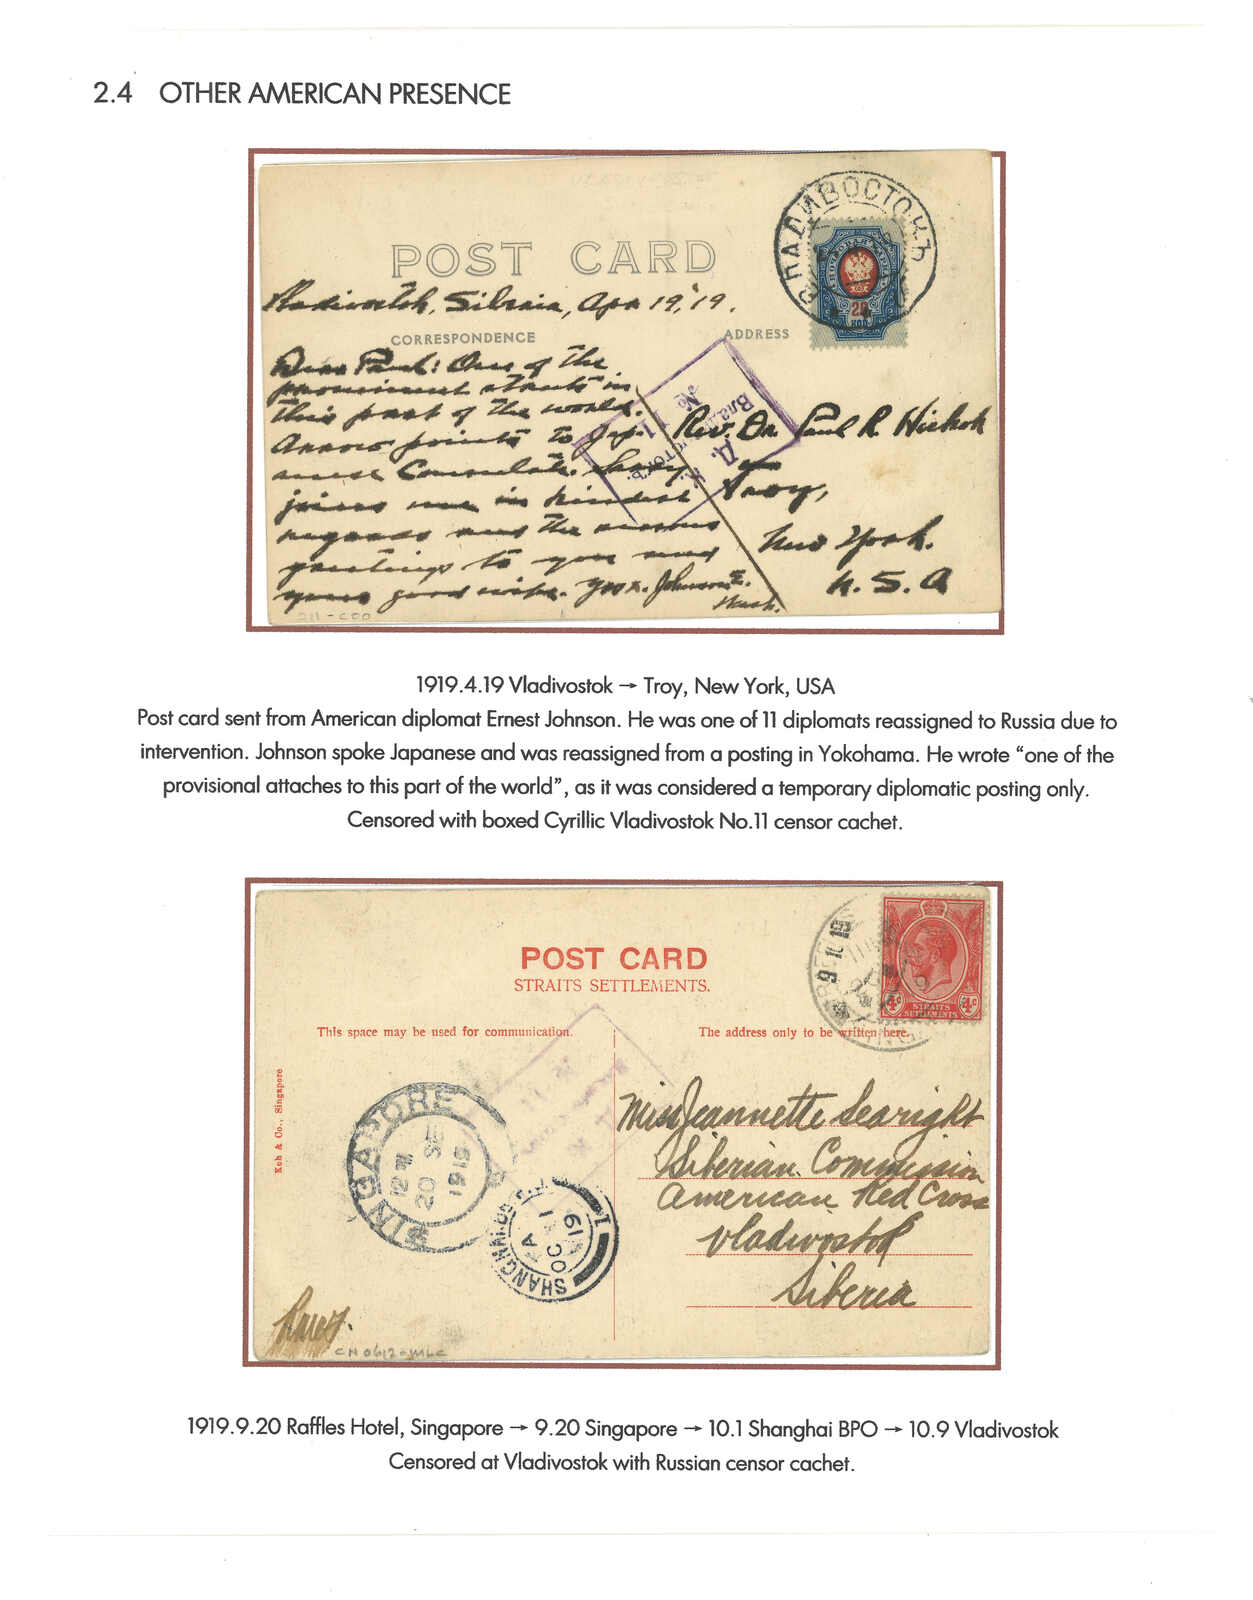 2.4 OTHER AMERICAN PRESENCE
ВЛАДИВОСТОКЪ
20
КОП
POST CARD
Vladivostok, Siberia, Apr 19, '19.
CORRESPONDENCE
ADDRESS
Dear Paul: One of the
prominent streets in
this part of the world.
Arrow points to Jap-
anese Consulate.
joins me in kindest
regards and the
greetings to you and
your good wife. Johnson
№ 11
Д.
Rev. Dr. Paul R. Hickok
Troy,
New York.
U.S.A
1919.4.19 Vladivostok → Troy, New York, USA
Post card sent from American diplomat Ernest Johnson. He was one of 11 diplomats reassigned to Russia due to
intervention. Johnson spoke Japanese and was reassigned from a posting in Yokohama. He wrote “one of the
provisional attaches to this part of the world”, as it was considered a temporary diplomatic posting only.
Censored with boxed Cyrillic Vladivostok No.11 censor cachet.
9 10 19
4c 4c
STRAITS
SETTLEMENTS
POST CARD
STRAITS SETTLEMENTS.
This space may be used for communication.
The address only to be written here.
Koh & Co., Singapore
SINGAPORE
12
20 SE
1919
SHANGHAI
A
OC 1
19
Miss Jeannette Searight
Siberian Commission
American Red Cross
Vladivostok
Siberia
1919.9.20 Raffles Hotel, Singapore → 9.20 Singapore → 10.1 Shanghai BPO → 10.9 Vladivostok
Censored at Vladivostok with Russian censor cachet.